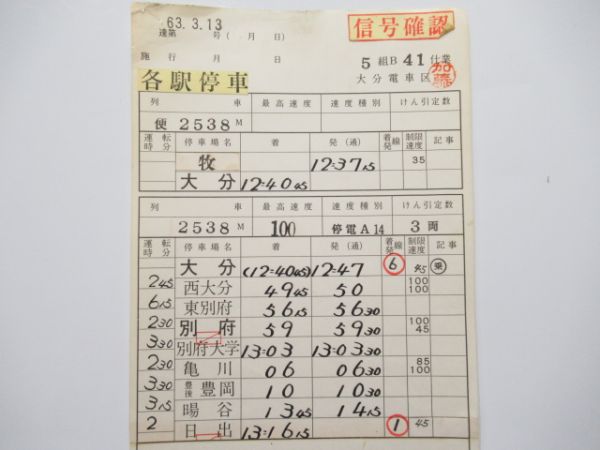 63.3.13
信号確認
達第 号( 月 日)
施行 月 日
5組B 41仕業
各駅停車
大分電車区 加藤
列車 最高速度 速度種別 けん引定数
便 2538M
運転時分 停車場名 着 発(通) 着発線 制限速度 記事
牧 12=37 15 35
大分 12=40 45
列車 最高速度 速度種別 けん引定数
2538M 100 停電A14 3両
運転時分 停車場名 着 発(通) 着発線 制限速度 記事
大分 (12=40 45) 12=47 6 45 乗
2 45 西大分 49 45 50 100 100
6 15 東別府 56 15 56 30
2 30 別府 59 59 30 100 45
3 30 別府大学 13=03 13=03 30
2 30 亀川 06 06 30 85 100
3 30 豊後豊岡 10 10 30
3 15 暘谷 13 45 14 15
2 日出 13=16 15 1 45